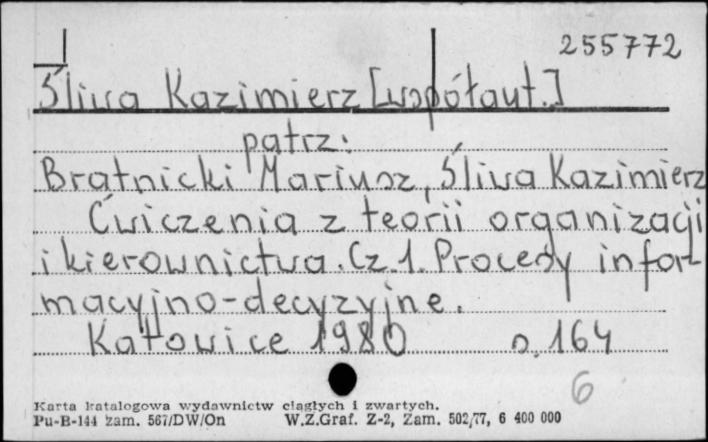 255772
Śliwa Kazimierz [współaut.]
patrz:
Bratnicki Mariusz, Śliwa Kazimierz
Ćwiczenia z teorii organizacji
i kierownictwa. Cz. 1. Procesy infor-
macyjno-decyzyjne.
Katowice 1980 s. 164
6
Karta katalogowa wydawnictw ciągłych i zwartych.
Pu-B-144 zam. 567/DW/On W.Z.Graf. Z-2, Zam. 502/77, 6 400 000